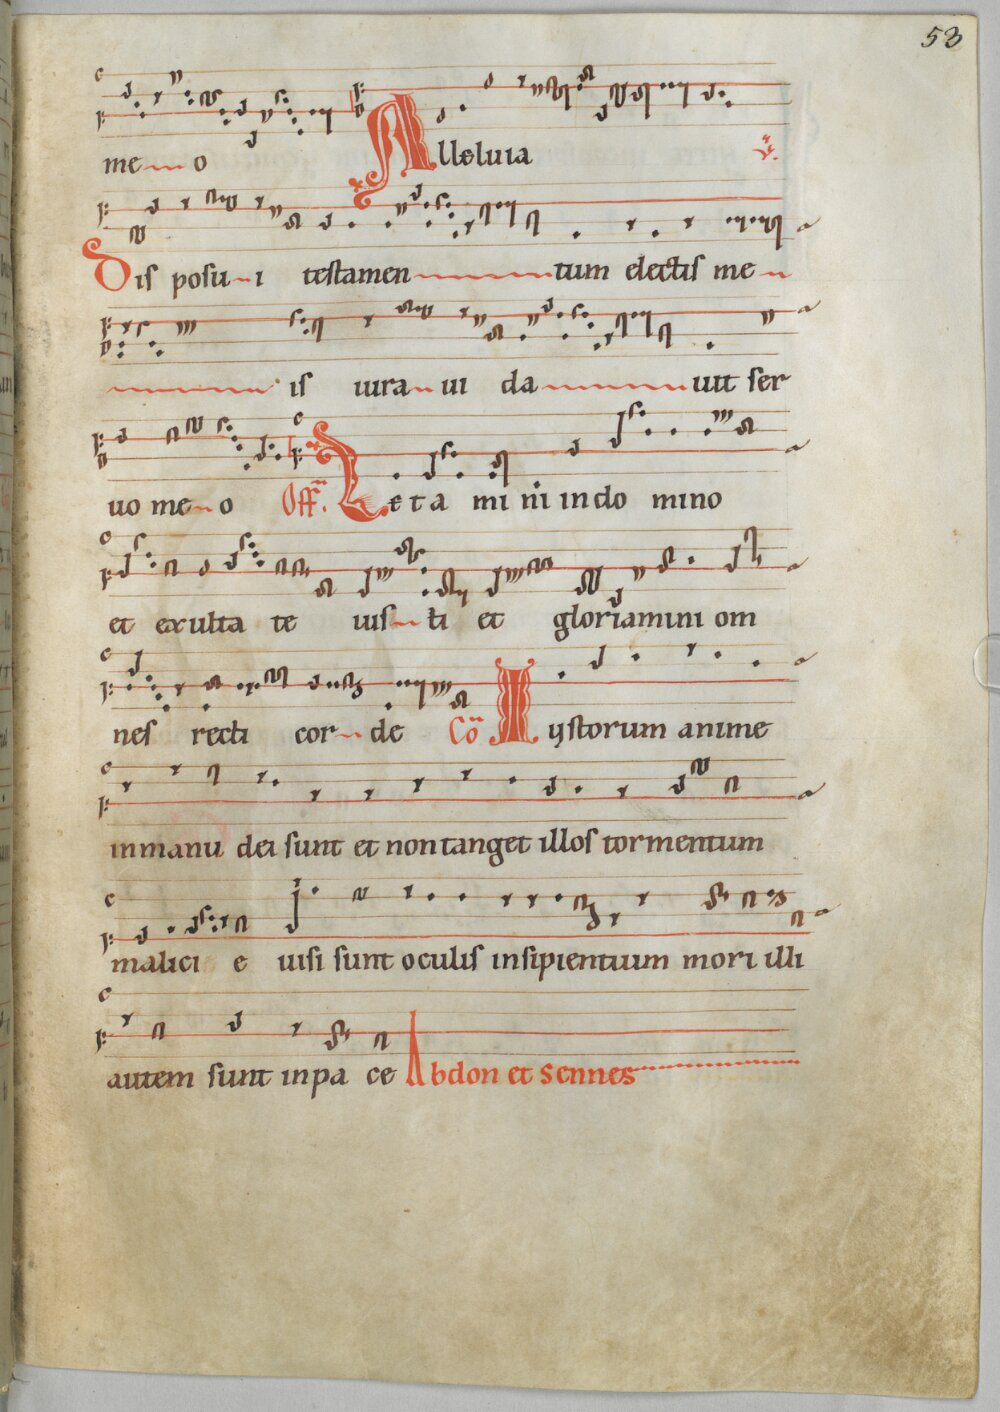 53
me o Alleluia ℣.
Dis posu i testamen tum electis me
is iura ui da uit ser
uo me o Off. Leta mi ni in do mino
et exulta te iusti et gloriamini om
nes recti cor de Cō Iustorum anime
in manu dei sunt et non tanget illos tormentum
malici e uisi sunt oculis insipientium mori illi
autem sunt in pa ce Abdon et Sennes